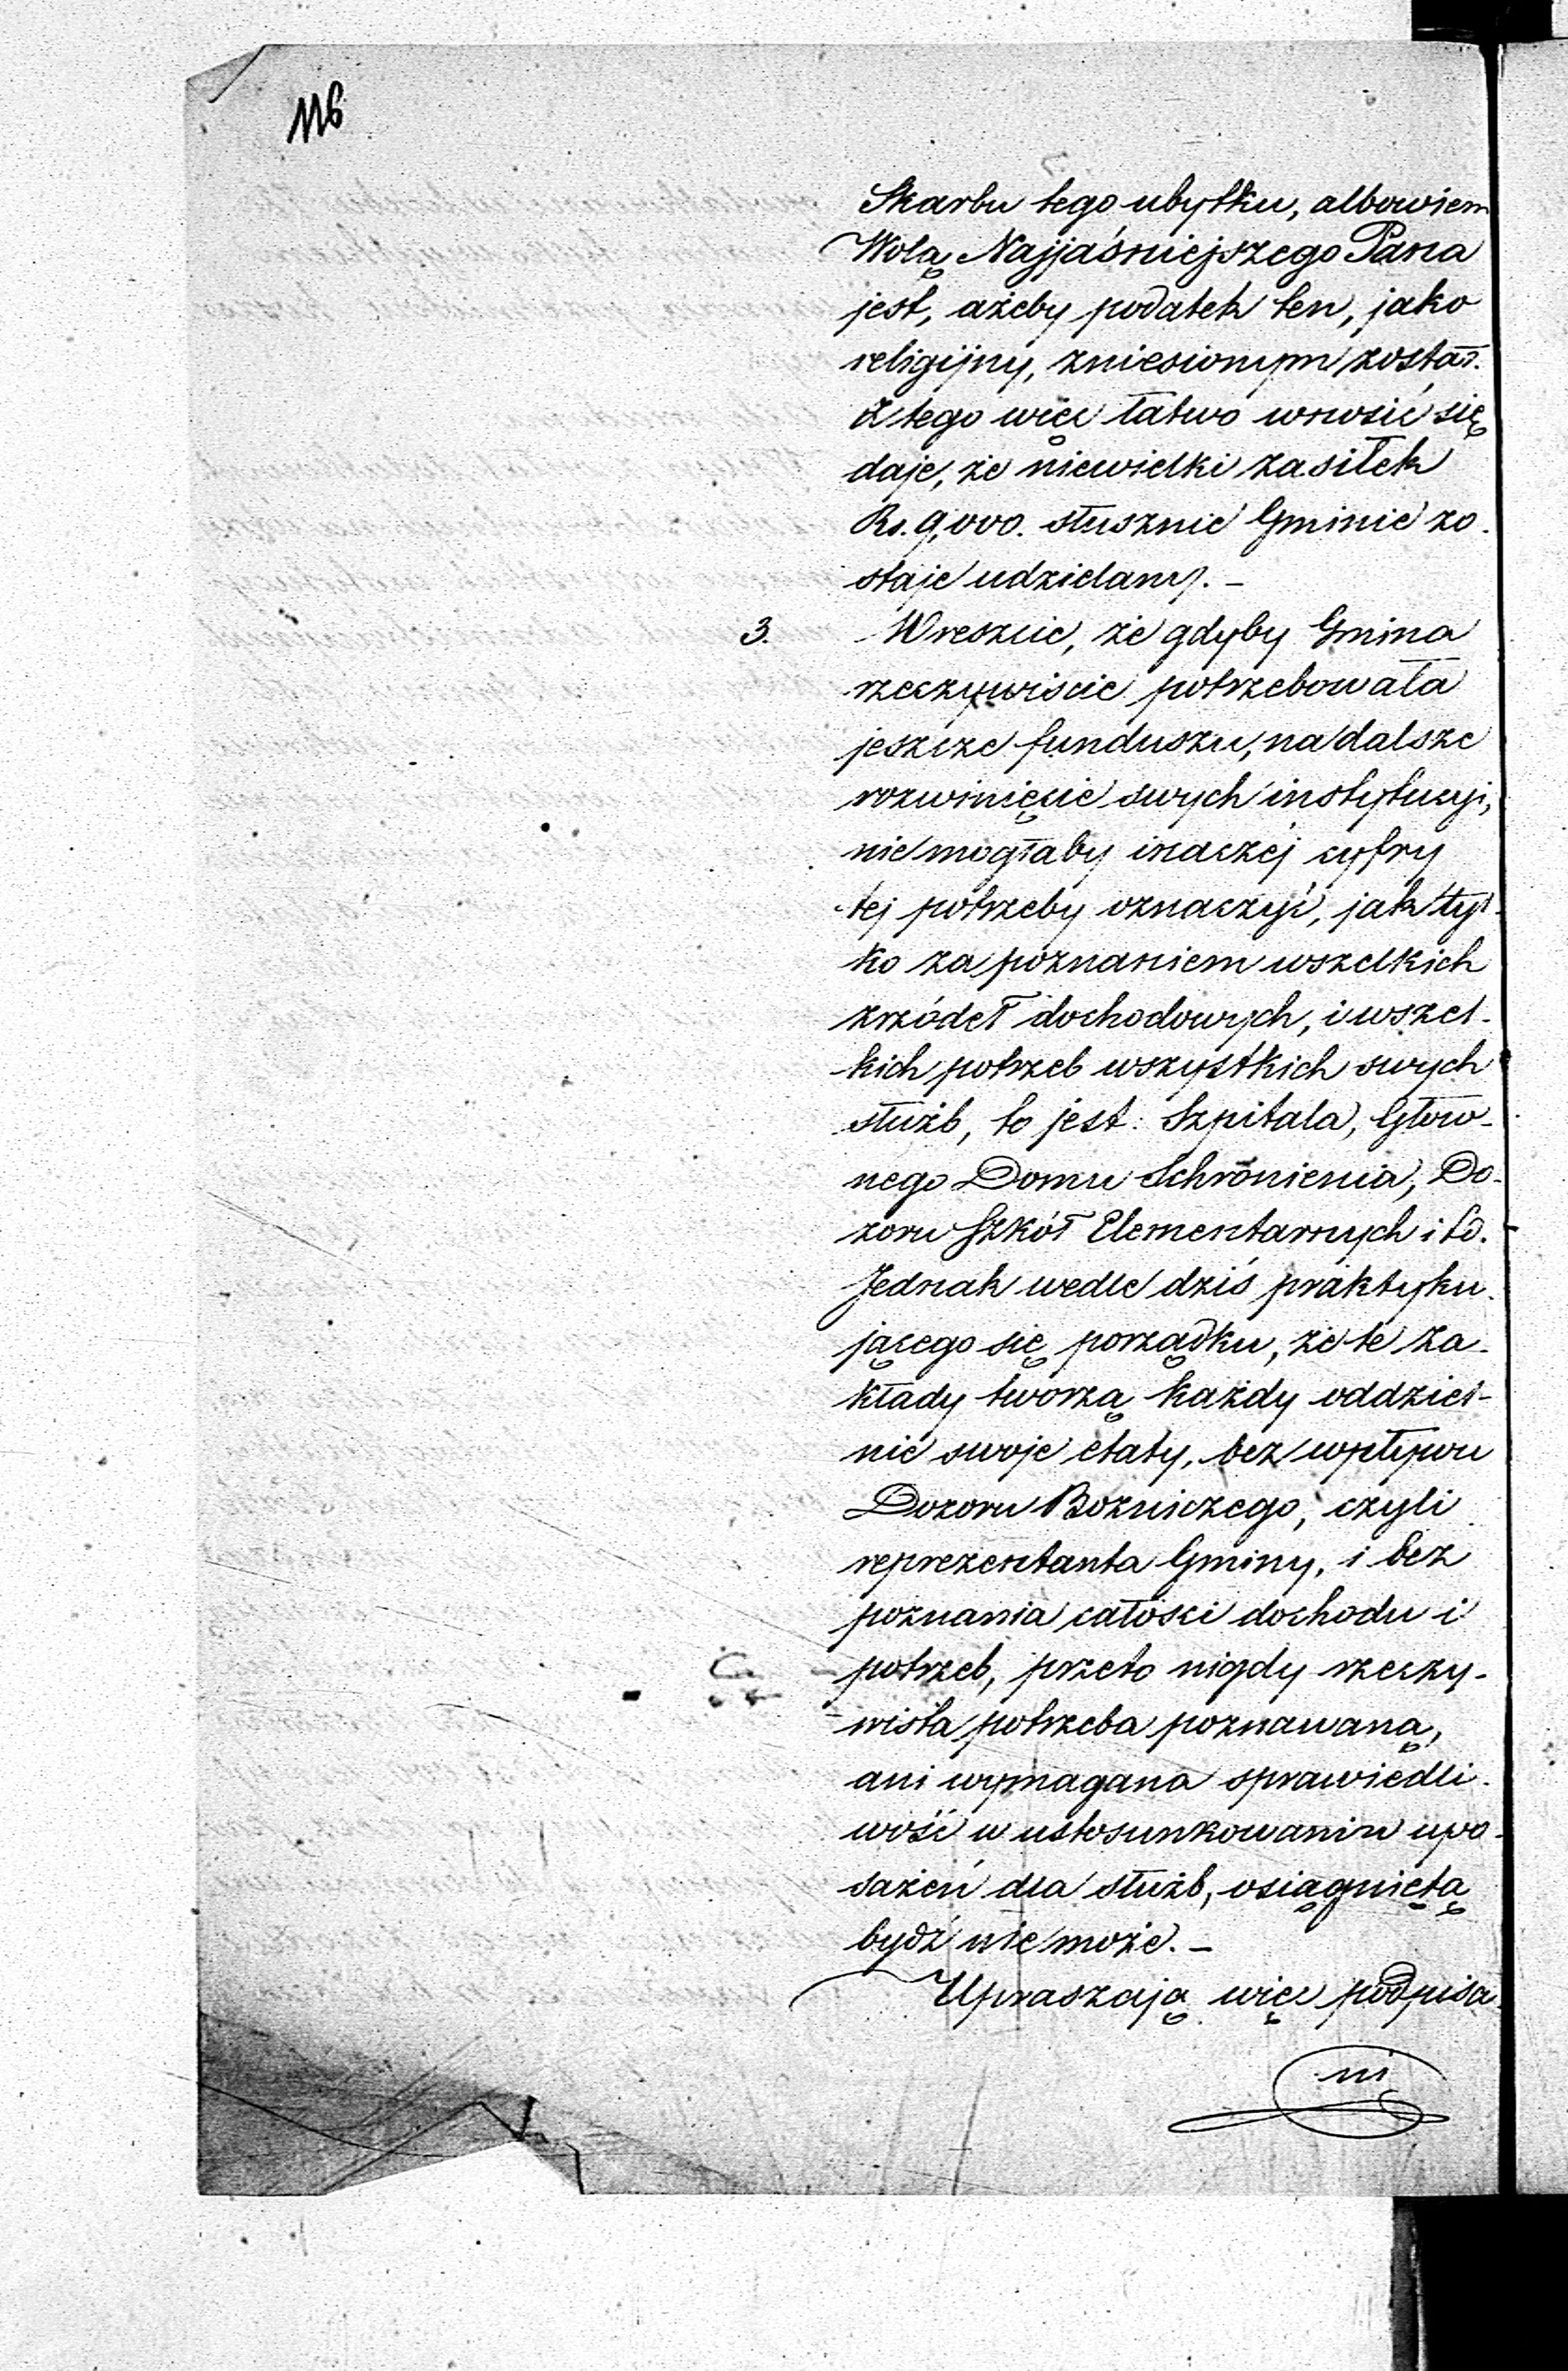 116
Skarbu tego ubytku, albowiem
Wolą Najjaśniejszego Pana
jest, ażeby podatek ten, jako
religijny, zniesionym został.
Z tego więc łatwo wnosić się
daje, że niewielki zasiłek
Rs. 9,000. słusznie Gminie zo-
staje udzielany. –
3. Wreszcie, że gdyby Gmina
rzeczywiscie potrzebowała
jeszcze funduszu, na dalsze
rozwinięcie swych instytucyi,
nie mogłaby inaczéj cyfry
téj potrzeby oznaczyć, jak tyl-
ko za poznaniem wszelkich
zrzódeł dochodowych, i wszel-
kich potrzeb wszystkich swych
służb, to jest: Szpitala, Głów-
nego Domu Schronienia, Do-
zoru Szkół Elementarnych i t.d.
Jednak wedle dziś praktyku-
jącego się porządku, że te za-
kłady tworzą każdy oddziel-
nie swoje etaty, bez wpływu
Dozoru Bozniczego, czyli
reprezentanta Gminy, i bez
poznania całosci dochodu i
potrzeb, przeto nigdy rzeczy-
wista potrzeba poznawaną,
ani wymagana sprawiedli-
wość w ustosunkowaniu upo-
sażeń dla służb, osiągniętą
bydź nie może. –
Upraszają więc podpisa-
ni